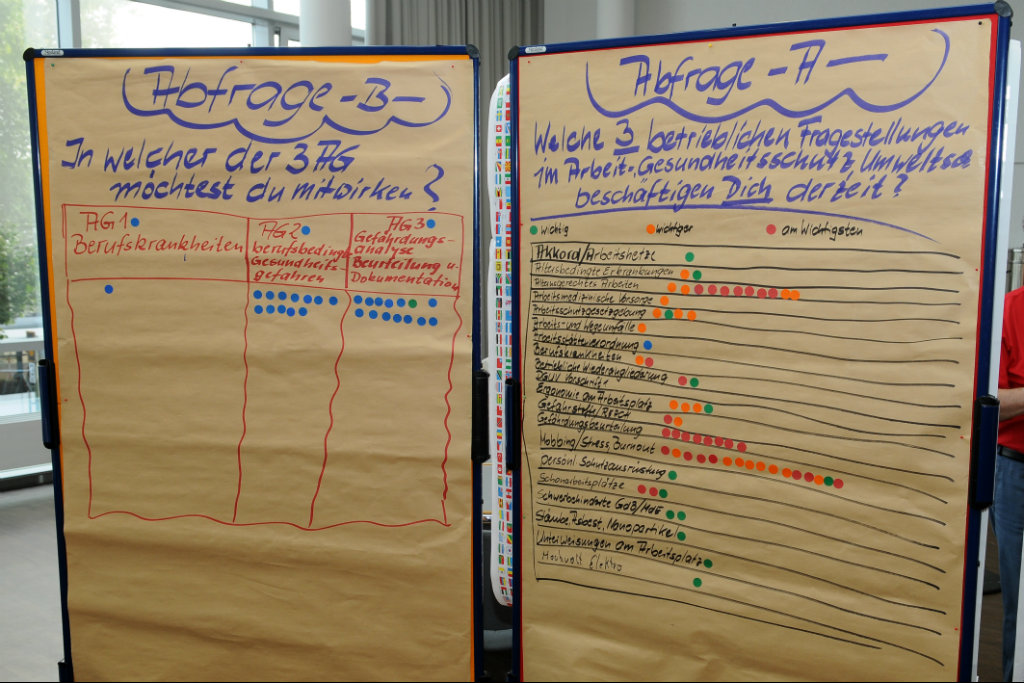 Abfrage - B -
In welcher der 3 AG
möchtest du mitwirken?
AG 1
Berufskrankheiten
AG 2
berufsbedingte
Gesundheits-
gefahren
AG 3
Gefährdungs-
analyse
Beurteilung u.
Dokumentation
Abfrage - A -
Welche 3 betrieblichen Fragestellungen
im Arbeit-, Gesundheitsschutz, Umweltsch
beschäftigen Dich derzeit?
wichtig wichtiger am Wichtigsten
Akkord/Arbeitshetze
Altersbedingte Erkrankungen
Altersgerechtes Arbeiten
Arbeitsmedizinische Vorsorge
Arbeitsschutzgesetzgebung
Arbeits- und Wegeunfälle
Arbeitsstättenverordnung
Berufskrankheiten
Betriebliche Wiedereingliederung
DGUV Vorschrift 1
Ergonomie am Arbeitsplatz
Gefahrstoffe/REACH
Gefährdungsbeurteilung
Mobbing/Stress, Burnout
persönl. Schutzausrüstung
Schonarbeitsplätze
Schwerbehinderte GdB/MdE
Stäube, Asbest, Nanopartikel
Unterweisungen am Arbeitsplatz
Hochvolt Elektro